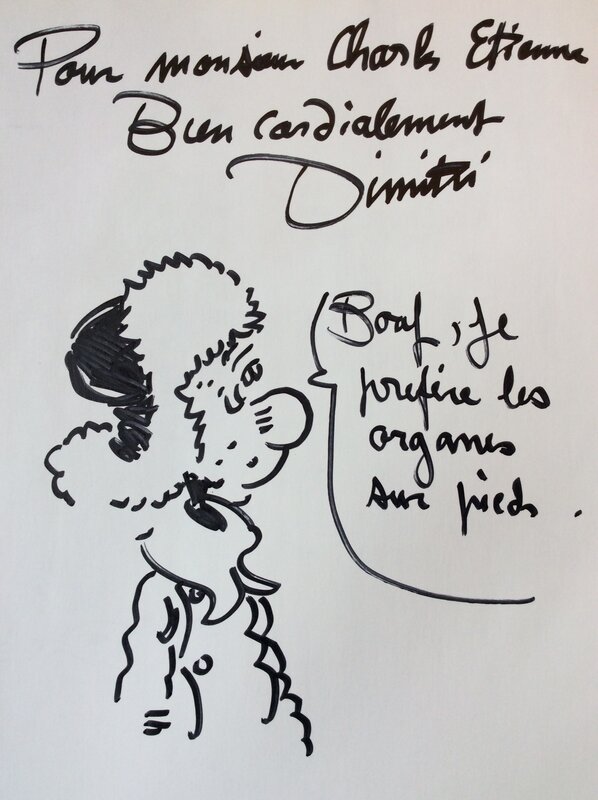 Pour monsieur Charles Etienne
Bien cordialement
Dimitri
Bouf, je
préfère les
organes
sur pieds.